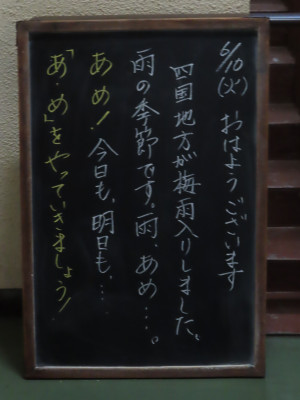 6/10(火) おはようございます
四国地方が梅雨入りしました。
雨の季節です。雨、あめ…。
あめ！今日も、明日も、…
「あ・め」をやっていきましょう！